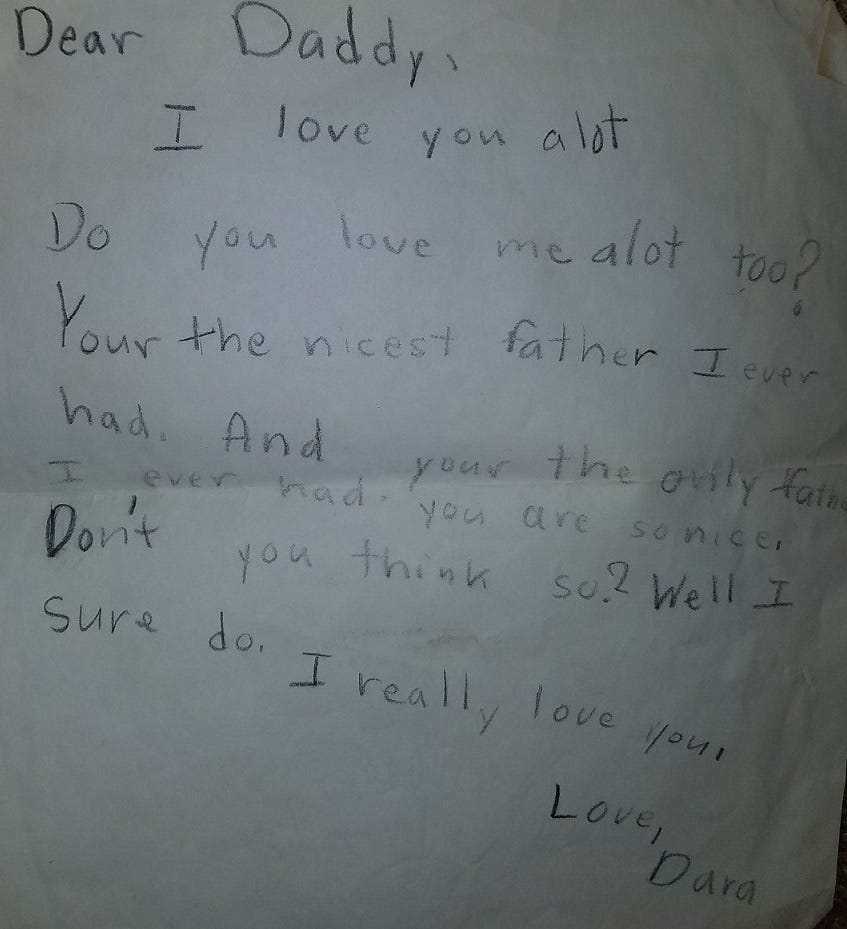 Dear Daddy,
I love you alot
Do you love me alot too?
Your the nicest father I ever
had. And your the only fathe
I ever had. you are so nice.
Don't you think so? Well I
sure do.
I really love you,
Love,
Dara